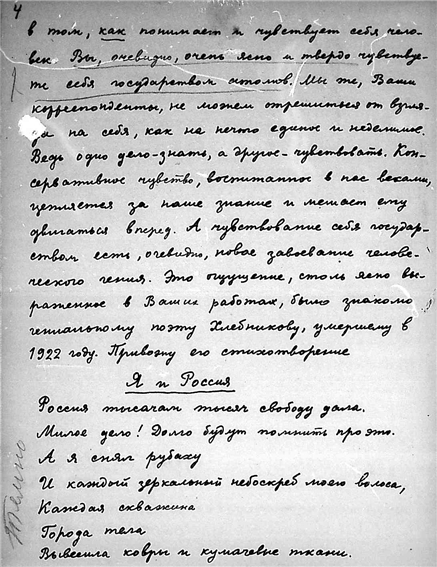 4
в том, как понимает и чувствует себя чело-
век. Вы, очевидно, очень ясно и твердо чувствуе-
те себя государством атомов. Мы же, Ваши
корреспонденты, не можем отрешиться от взгля-
да на себя, как на нечто единое и неделимое.
Ведь одно дело-знать, а другое-чувствовать. Кон-
сервативное чувство, воспитанное в нас веками,
цепляется за наше знание и мешает ему
двигаться вперед. А чувствование себя государ-
ством есть, очевидно, новое завоевание челове-
ческого гения. Это ощущение, столь ясно вы-
раженное в Ваших работах, было знакомо
гениальному поэту Хлебникову, умершему в
1922 году. Привожу его стихотворение
Я и Россия
Россия тысячам тысяч свободу дала.
Милое дело! Долго будут помнить про это.
А я снял рубаху
И каждый зеркальный небоскреб моего волоса,
Каждая скважина
Города тела
Вывесила ковры и кумачевые ткани.